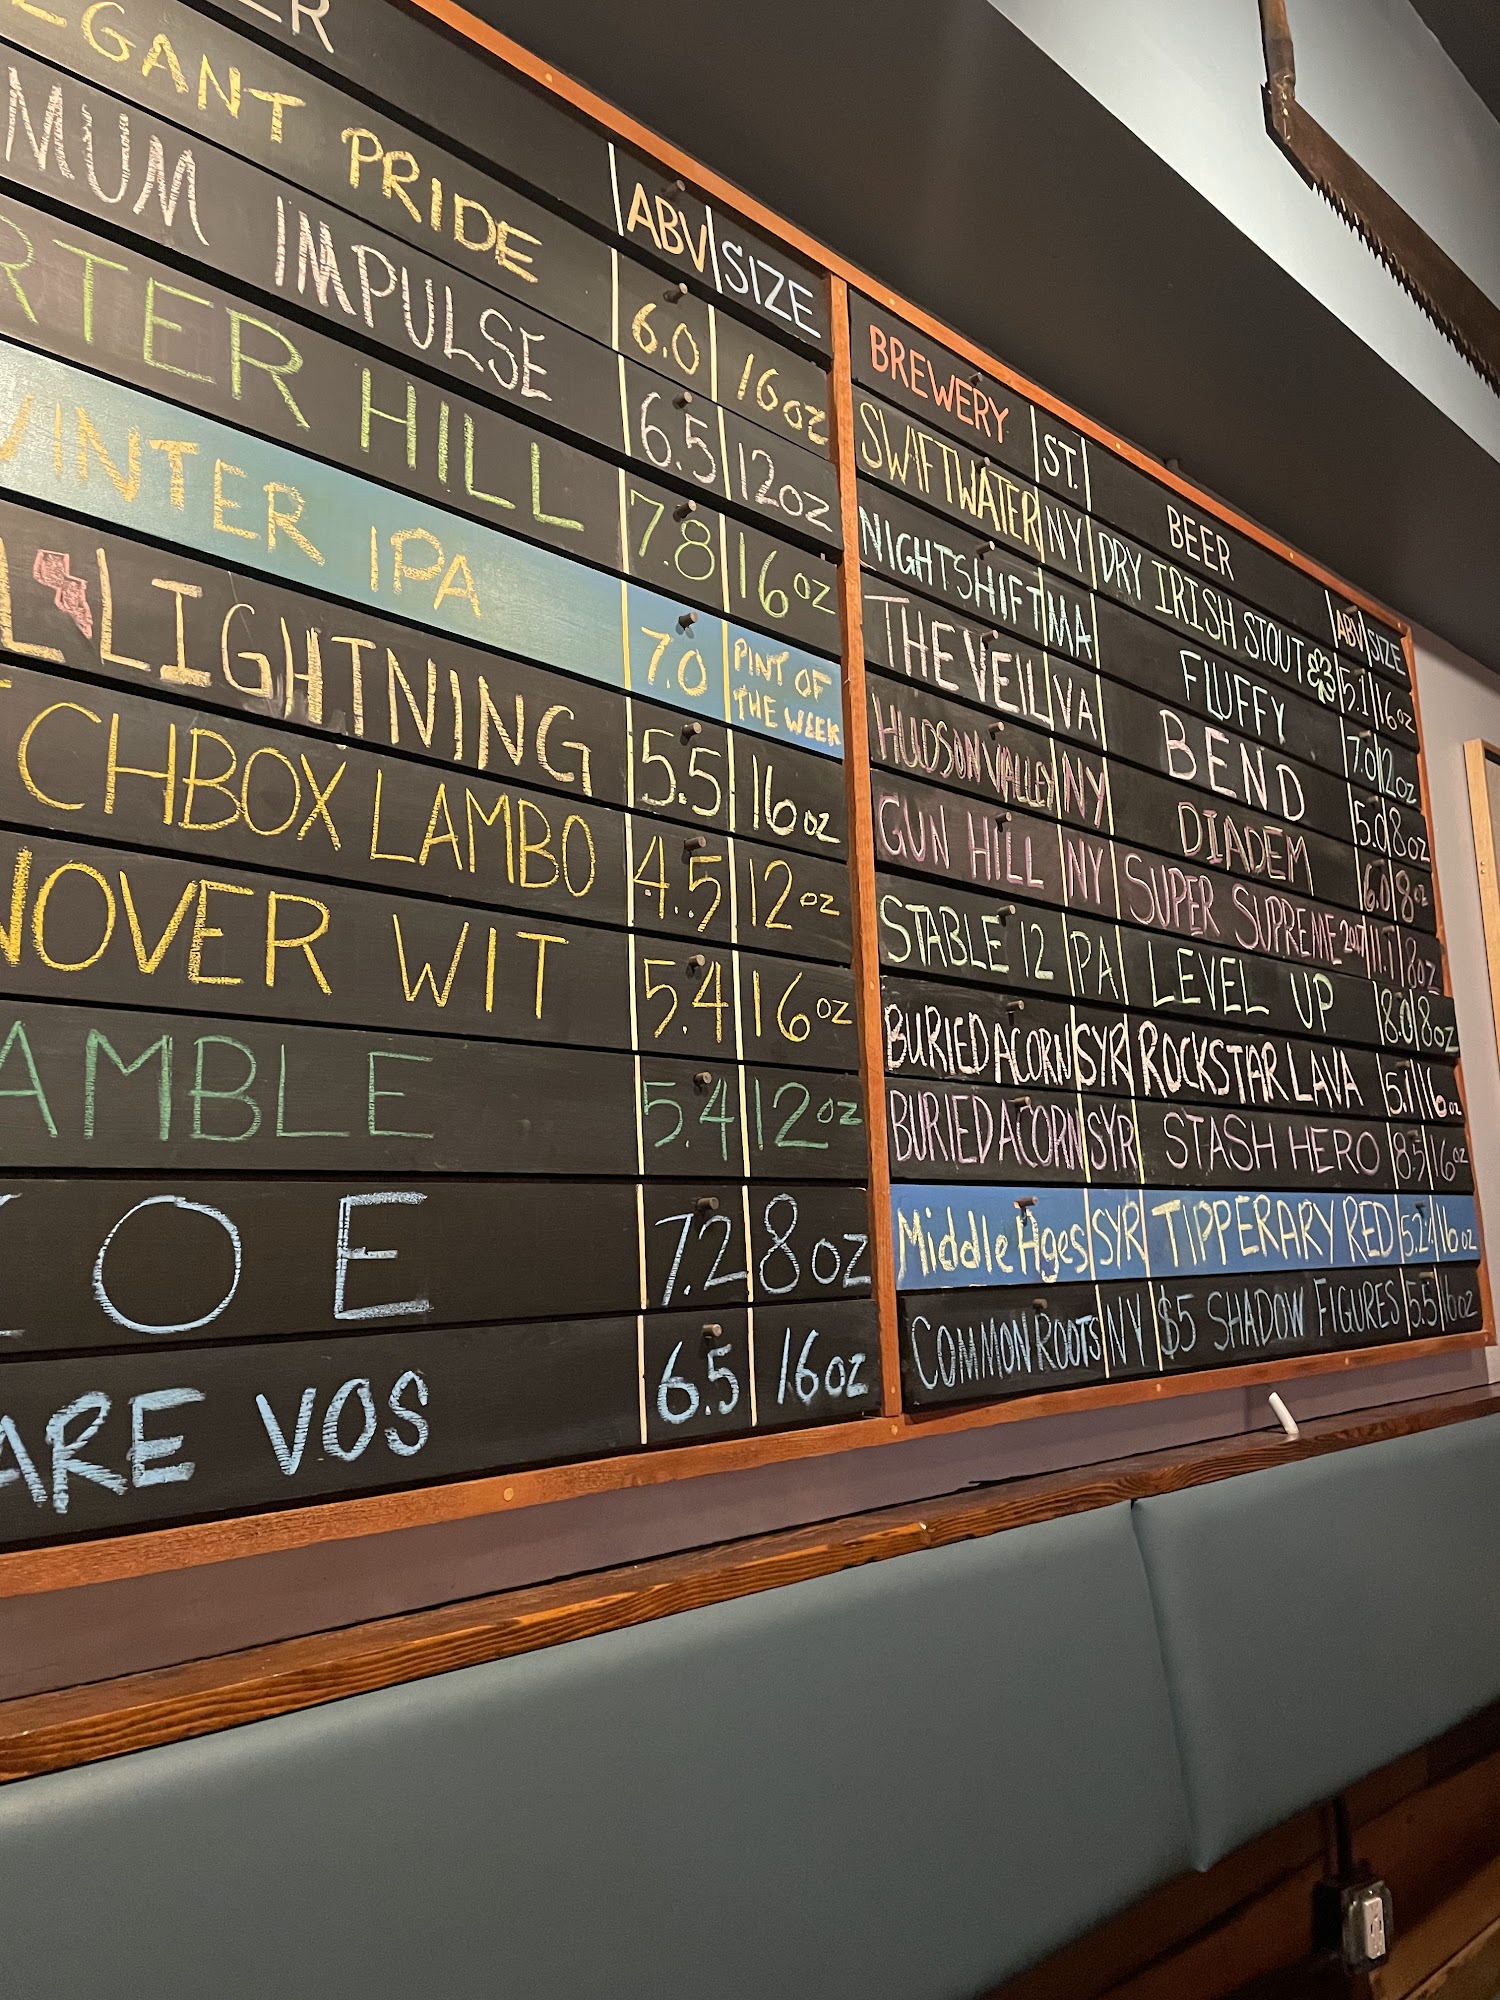 ER
EGANT PRIDE 6.0 16oz
MUM IMPULSE 6.5 12oz
RTER HILL 7.8 16oz
WINTER IPA 7.0 PINT OF THE WEEK
L LIGHTNING 5.5 16oz
CHBOX LAMBO 4.5 12oz
NOVER WIT 5.4 16oz
AMBLE 5.4 12oz
OE 7.2 8oz
ARE VOS 6.5 16oz
ABV SIZE
BREWERY ST. BEER ABV SIZE
SWIFTWATER NY DRY IRISH STOUT 5.1 16oz
NIGHTSHIFT MA FLUFFY 7.0 12oz
THE VEIL VA BEND 5.0 8oz
HUDSON VALLEY NY DIADEM 6.0 8oz
GUN HILL NY SUPER SUPREME 2017 11.1 8oz
STABLE 12 PA LEVEL UP 8.0 8oz
BURIED ACORN SYR ROCKSTAR LAVA 5.1 16oz
BURIED ACORN SYR STASH HERO 8.5 16oz
Middle Ages SYR TIPPERARY RED 16oz
COMMON ROOTS NY $5 SHADOW FIGURES 5.5 16oz